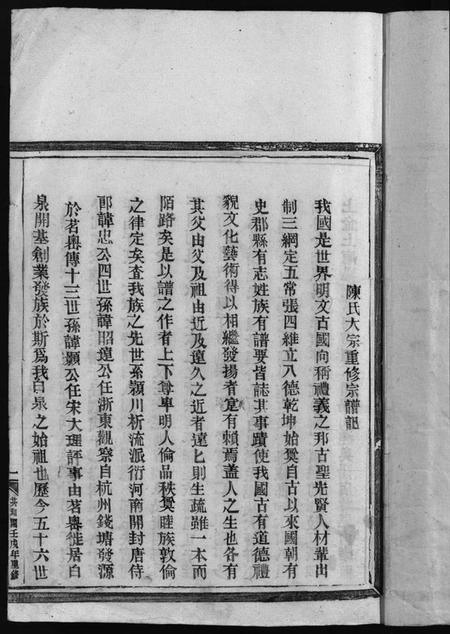 陳氏大宗重修宗譜記
我國是世界明文古國向稱禮義之邦古聖先賢人材輩出
制三綱定五常張四維立八德乾坤始奠自古以來國朝有
史郡縣有志姓族有譜要皆誌其事蹟使我國古有道德禮
貌文化藝術得以相繼發揚者寔有賴焉蓋人之生也各有
其父由父及祖由近及遠久之近者遠匕則生疏雖一本而
陌路矣是以譜之作者上下尊卑明人倫品秩奠睦族敦倫
之律定矣查我族之先世系潁川析流派衍河南開封唐侍
郎諱忠公四世孫諱昭遠公任浙東觀察自杭州錢塘發源
於茗嶴傳十三世孫諱顥公任宋大理評事由茗嶴徙居白
泉開基創業發族於斯爲我白泉之始祖也歷今五十六世
一
民國壬戌年重修